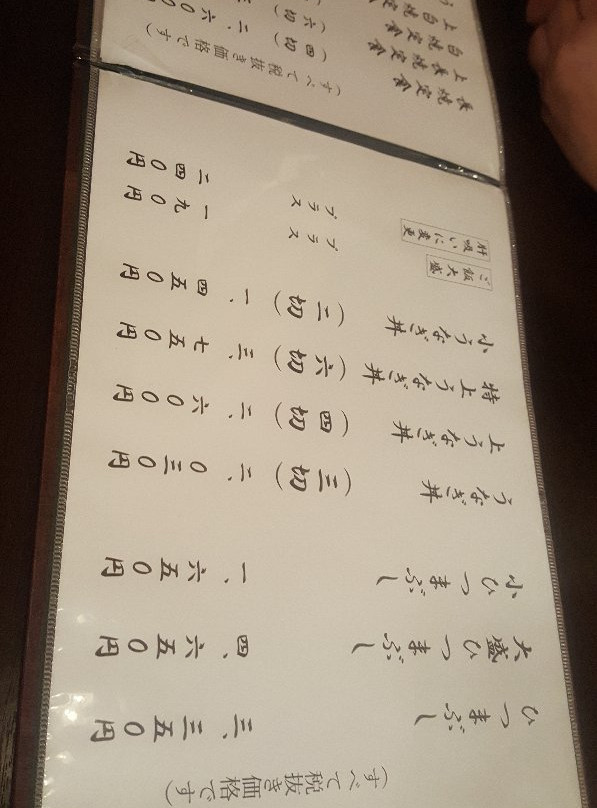 (すべて税抜き価格です)
ひつまぶし 三、三五〇円
大盛ひつまぶし 四、六五〇円
小ひつまぶし 一、六五〇円
うなぎ丼 (三切) 二、〇三〇円
上うなぎ丼 (四切) 二、六〇〇円
特上うなぎ丼 (六切) 三、七五〇円
小うなぎ丼 (二切) 一、四五〇円
ご飯大盛 プラス 一九〇円
肝吸いに変更 プラス 二四〇円
(すべて税抜き価格です)
長焼定食 (四切) 二、六〇〇
上長焼定食 (六切)
白焼定食
上白焼定食